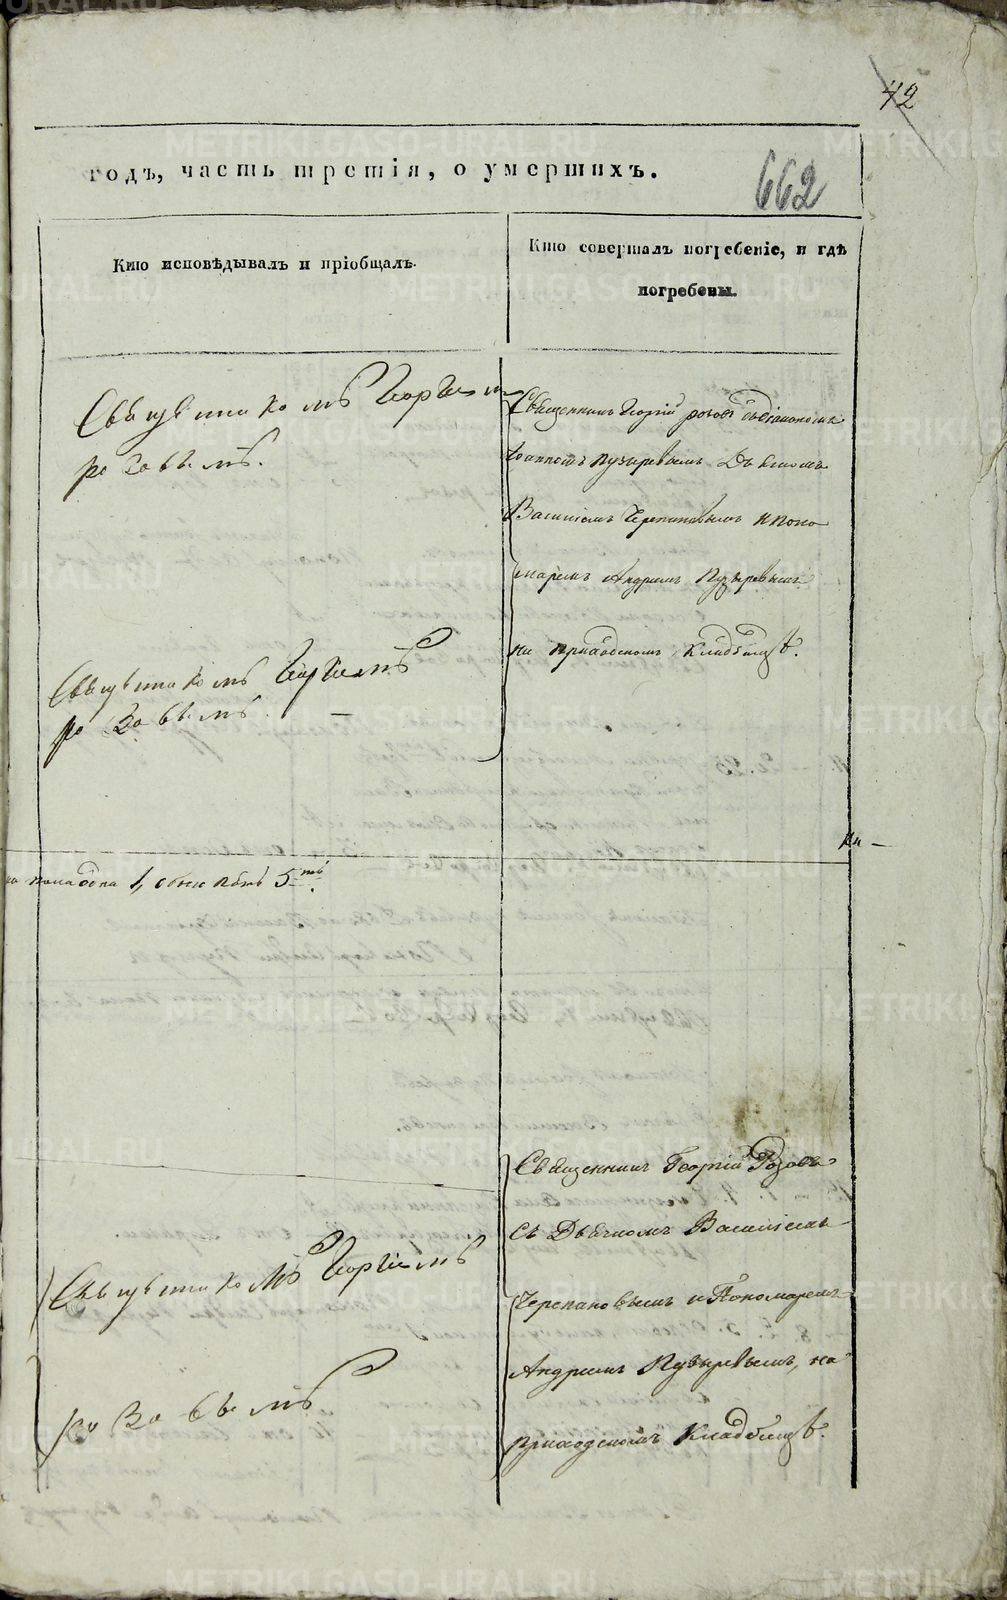 42
662
годъ, часть третія, о умершихъ.
Кто исповѣдывалъ и пріобщалъ.
Кто совершалъ погребеніе, и гдѣ
погребены.
Священникомъ Георгіемъ
розовымъ.
Священникъ Георгій розовъ съ діакономъ
Іоанномъ пузыревымъ Дьячкомъ
Василіемъ Черепановымъ и поно
маремъ Андреемъ Пузыревымъ
на приходскомъ кладбищѣ.
Священникомъ Георгіемъ
розовымъ. —
ни —
1, 5
Священникомъ Георгіемъ
розовымъ
Священникъ Георгій Розовъ
съ Дьячкомъ Василіемъ
Черепановымъ и Пономаремъ
Андреемъ Пузыревымъ, на
приходскомъ кладбищѣ.
METRIKI.GASO-URAL.RU